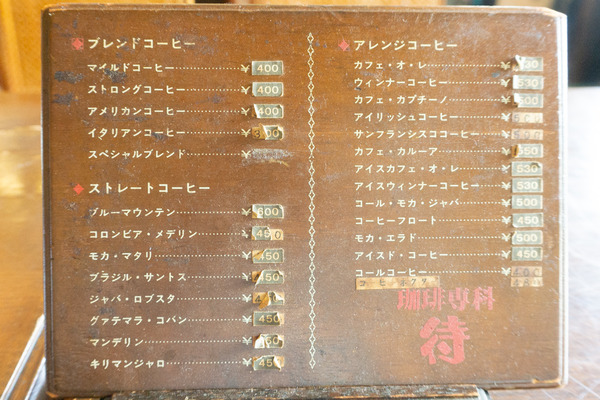 ブレンドコーヒー
マイルドコーヒー ¥400
ストロングコーヒー ¥400
アメリカンコーヒー ¥400
イタリアンコーヒー ¥
スペシャルブレンド ¥
ストレートコーヒー
ブルーマウンテン ¥600
コロンビア・メデリン ¥
モカ・マタリ ¥450
ブラジル・サントス ¥450
ジャバ・ロブスタ ¥
グァテマラ・コバン ¥450
マンデリン ¥
キリマンジャロ ¥
アレンジコーヒー
カフェ・オ・レ ¥
ウィンナーコーヒー ¥530
カフェ・カプチーノ ¥500
アイリッシュコーヒー ¥
サンフランシスココーヒー ¥
カフェ・カルーア ¥
アイスカフェ・オ・レ ¥530
アイスウィンナーコーヒー ¥530
コール・モカ・ジャバ ¥500
コーヒーフロート ¥450
モカ・エラド ¥500
アイスド・コーヒー ¥450
コールコーヒー ¥
珈琲専科
待